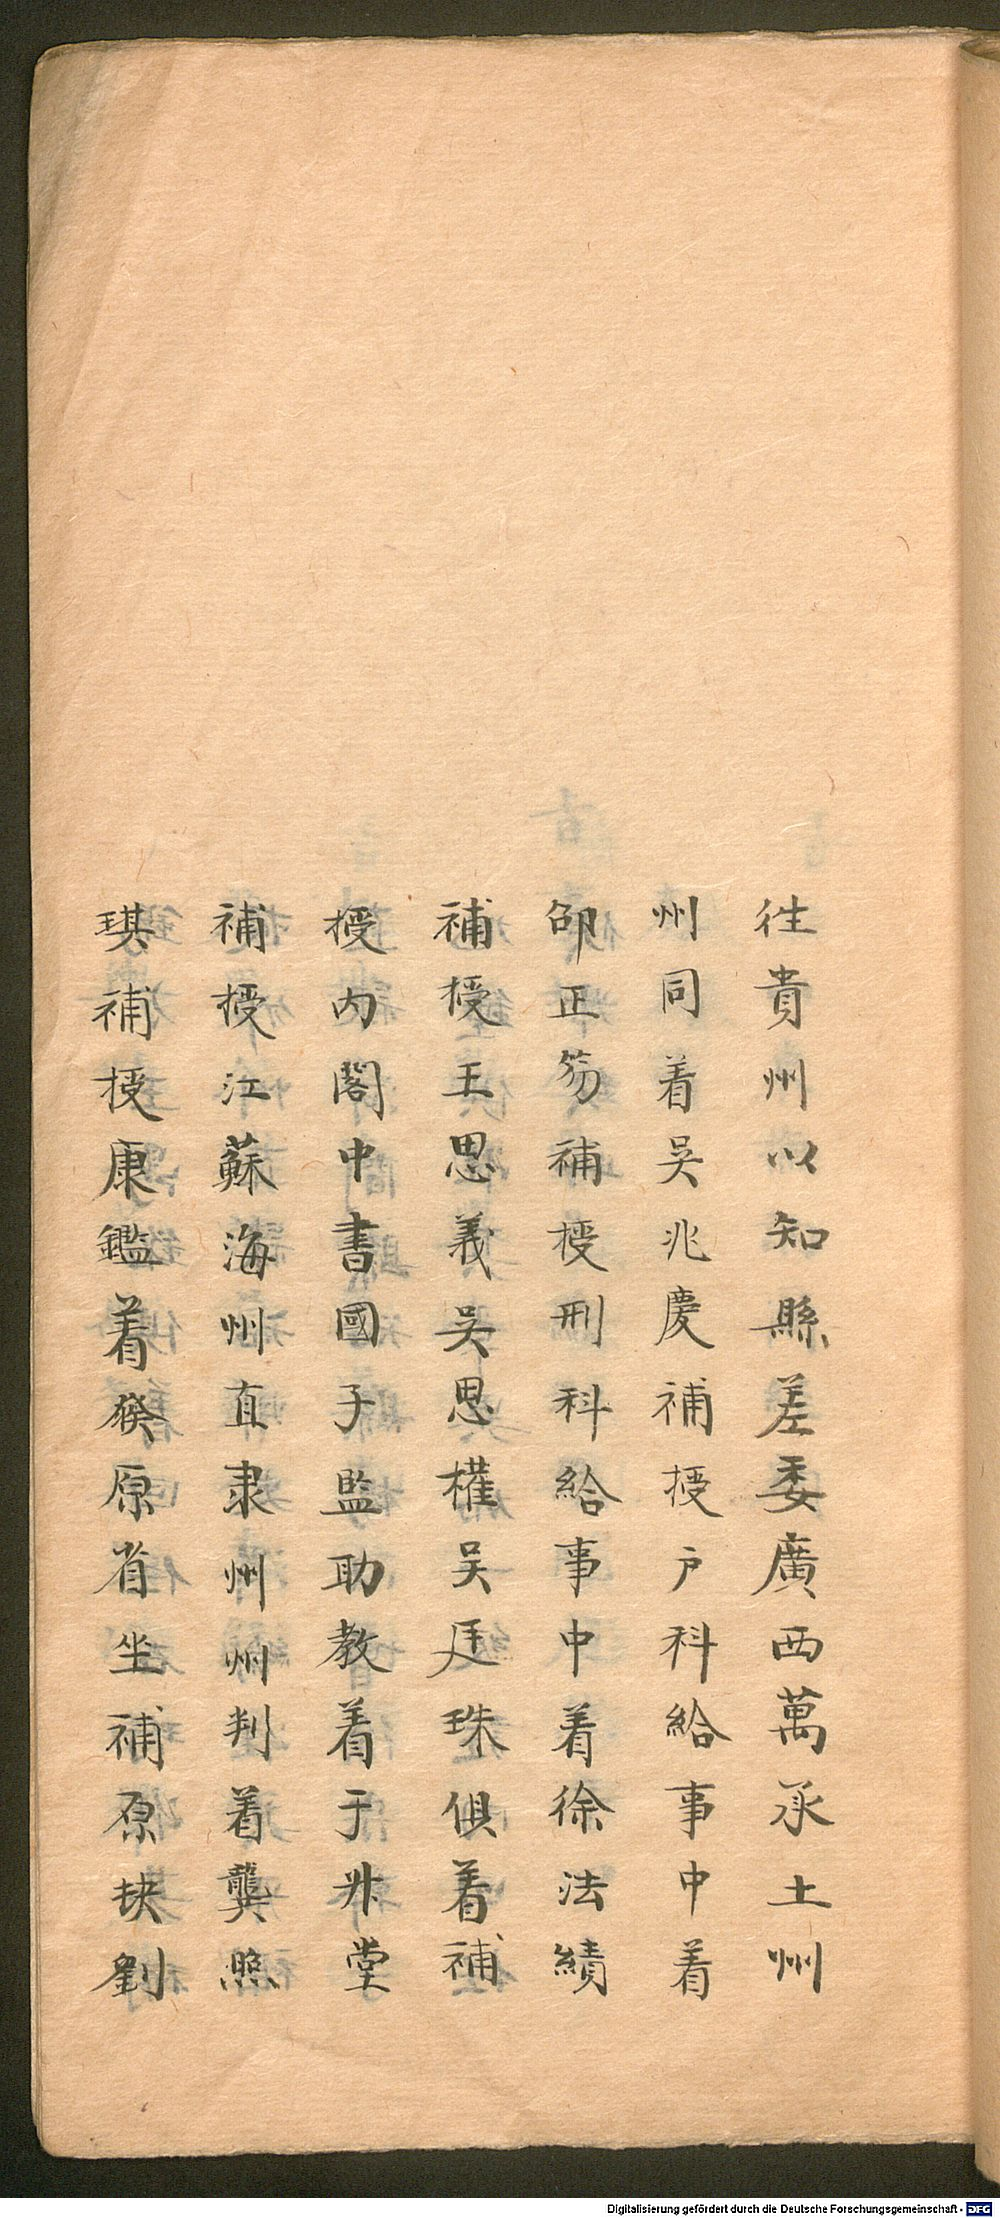 徃貴州以知縣差委廣西萬承土州
州同着吳兆慶補授户科給事中着
邵正笏補授刑科給事中着徐法績
補授王思義吳思權吴廷珠俱着補
授内閣中書國子監助教着于卅堂
補授江蘇海州直隶州州判着龔照
琪補授康鑑着癸原省坐補原抉劉
Digitalisierung gefördert durch die Deutsche Forschungsgemeinschaft - DFG